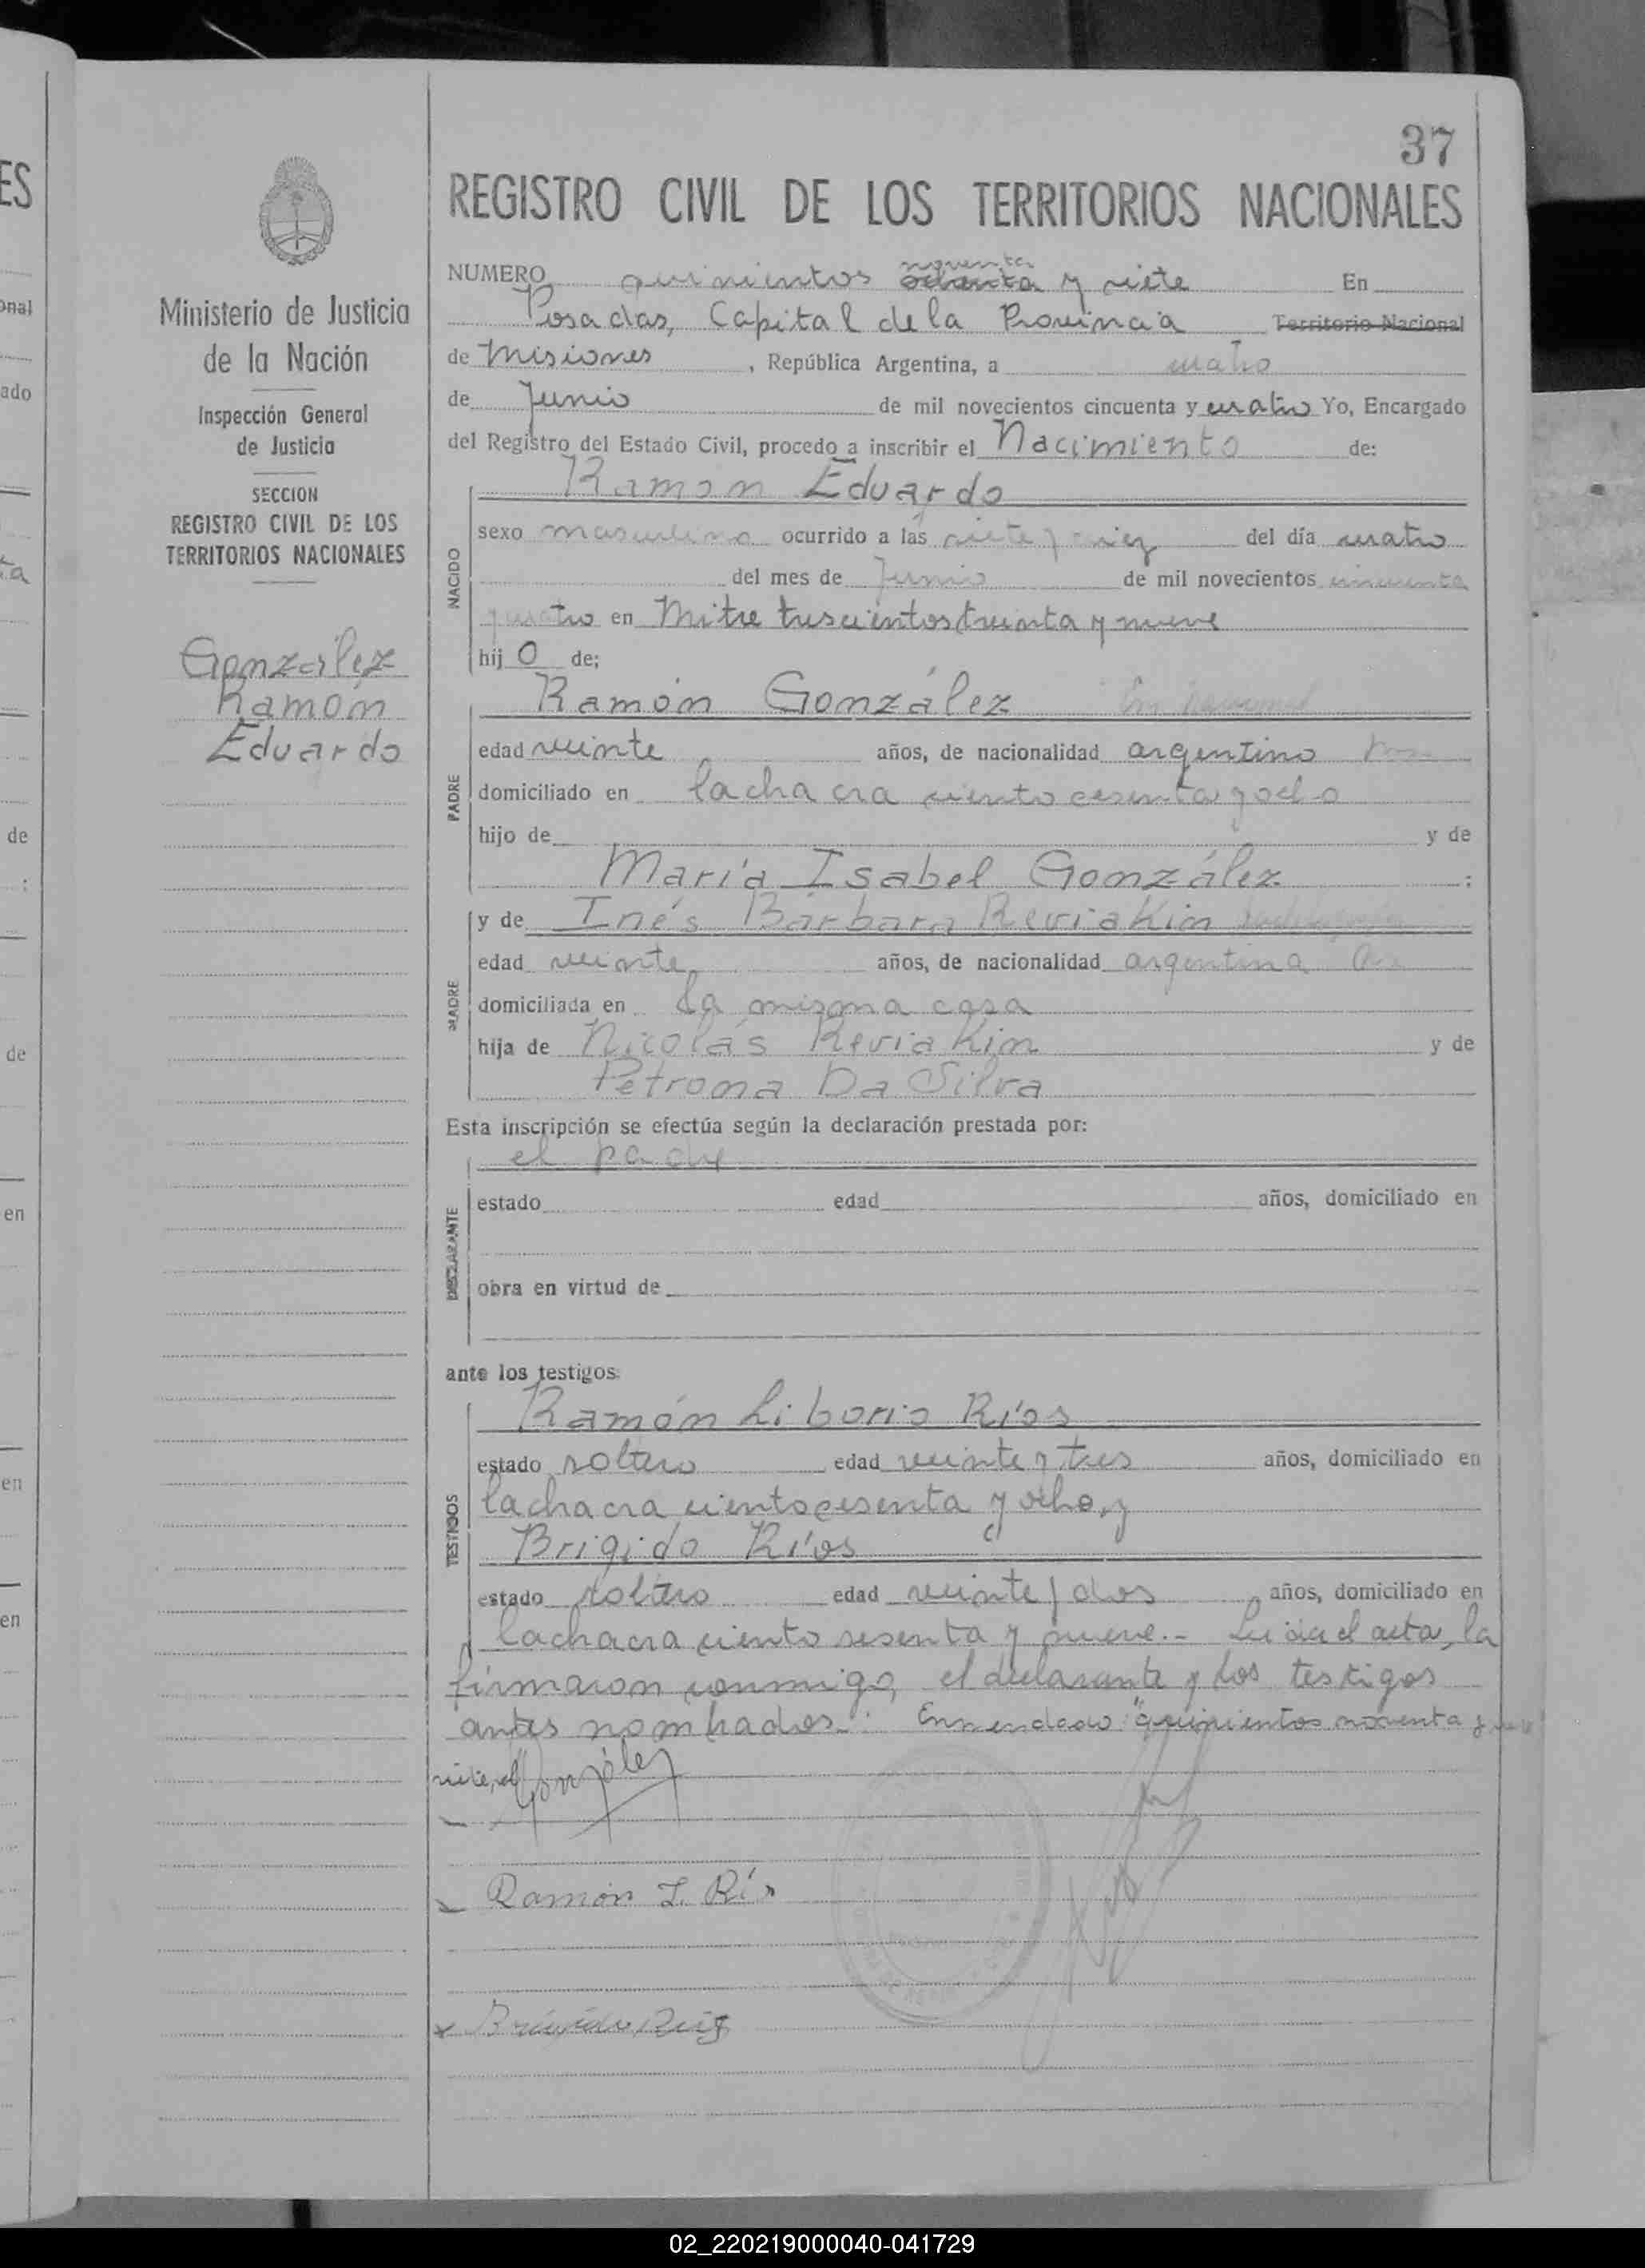 37
REGISTRO CIVIL DE LOS TERRITORIOS NACIONALES
Ministerio de Justicia
de la Nación
Inspección General
de Justicia
SECCION
REGISTRO CIVIL DE LOS
TERRITORIOS NACIONALES
González
Ramón
Eduardo
NUMERO quinientos noventa y siete En
Posadas, Capital de la Provincia Territorio Nacional
de Misiones, República Argentina, a cuatro
de Junio de mil novecientos cincuenta y cuatro Yo, Encargado
del Registro del Estado Civil, procedo a inscribir el Nacimiento de:
NACIDO
Ramon Eduardo
sexo masculino ocurrido a las siete y diez del día cuatro
del mes de Junio de mil novecientos cincuenta
cuatro en Mitre trescientos treinta y nueve
hij o de;
PADRE
Ramón González
edad veinte años, de nacionalidad argentino
domiciliado en la chacra ciento sesenta y ocho
hijo de y de
María Isabel González :
MADRE
y de Inés Bárbara Reviakin
edad veinte años, de nacionalidad argentina
domiciliada en la misma casa
hija de Nicolás Reviakin y de
Petrona Da Silva
Esta inscripción se efectúa según la declaración prestada por:
el padre
DECLARANTE
estado edad años, domiciliado en
obra en virtud de
ante los testigos:
TESTIGOS
Ramón Liborio Ríos
estado soltero edad veinte y tres años, domiciliado en
la chacra ciento sesenta y ocho, y
Brigido Ríos
estado soltero edad veinte y dos, años, domiciliado en
la chacra ciento sesenta y nueve.- Leída el acta, la
firmaron conmigo, el declarante y los testigos
antes nombrados.- Enmendado "quinientos noventa y
siete, vale
González
Ramón L. Ríos
02_220219000040-041729